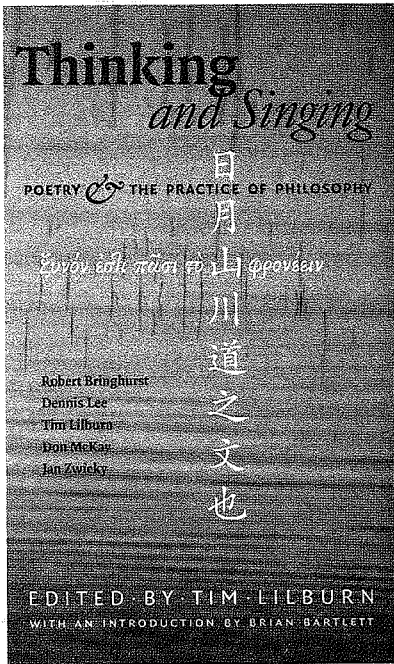 Thinking
and Singing
POETRY & THE PRACTICE OF PHILOSOPHY
日月山川道之文也
ξυνόν ἐστι πᾶσι τὸ φρονέειν
Robert Bringhurst
Dennis Lee
Tim Lilburn
Don McKay
Jan Zwicky
EDITED·BY·TIM·LILBURN
WITH AN INTRODUCTION BY BRIAN BARTLETT